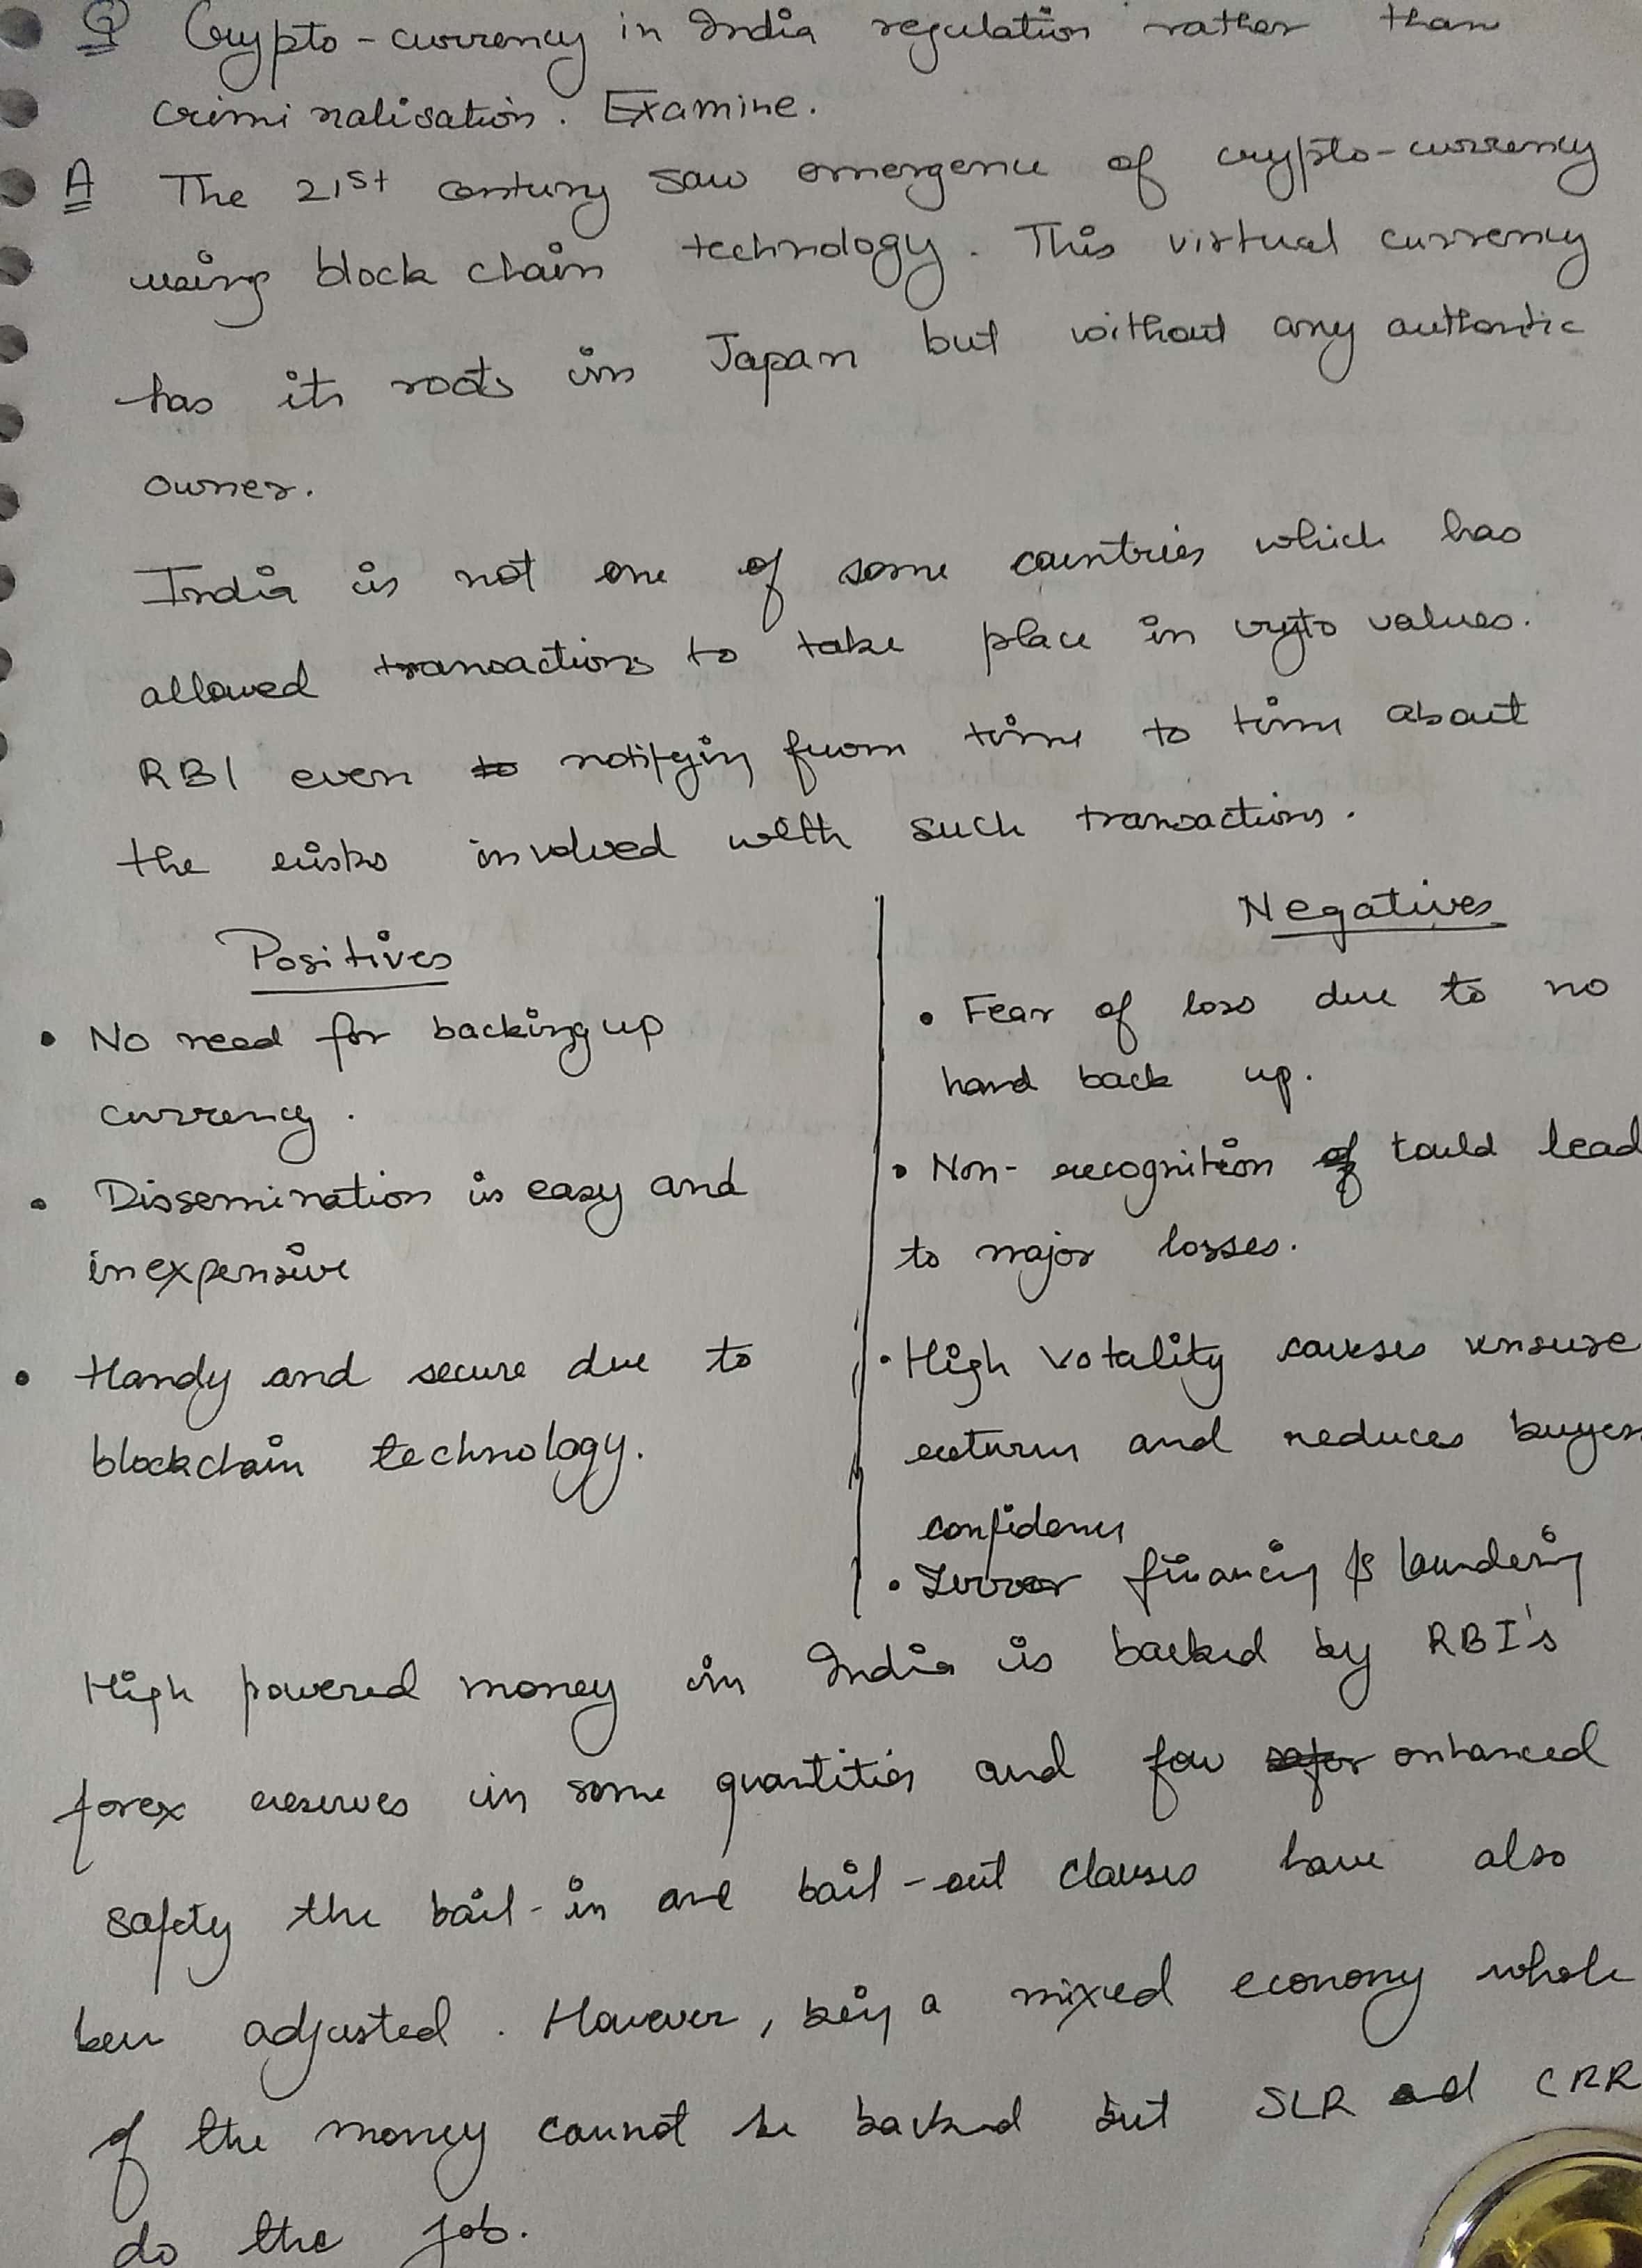 Q Crypto-currency in India regulation rather than
criminalisation. Examine.
A The 21st century saw emergence of crypto-currency
using block chain technology. This virtual currency
has its roots in Japan but without any authentic
owner.
India is not one of some countries which has
allowed transactions to take place in crypto values.
RBI even to notifying from time to time about
the risks involved with such transactions.
Positives
• No need for backing up
currency.
• Dissemination is easy and
inexpensive
• Handy and secure due to
blockchain technology.
Negatives
• Fear of loss due to no
hard back up.
• Non-recognition of could lead
to major losses.
• High votality causes unsure
returns and reduces buyers
confidence
• Terror financing & laundering
High powered money in India is backed by RBI's
forex reserves in some quantities and for enhanced
safety the bail-in and bail-out clauses have also
been adjusted. However, being a mixed economy whole
of the money cannot be backed but SLR and CRR
do the job.